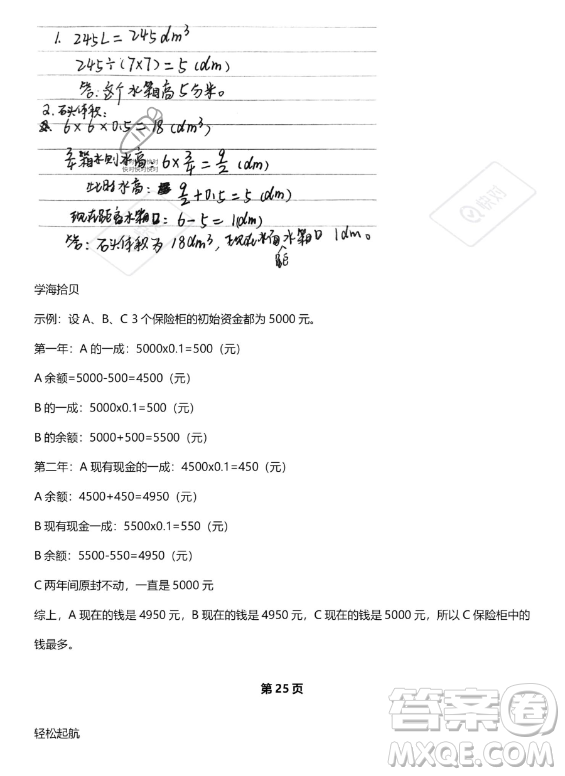 1. 245L=245dm³
245÷(7×7)=5(dm)
答:这个水箱高5分米。
2.石头体积:
6×6×0.5=18(dm³)
3/4箱水则水高:6×3/4=9/2(dm)
此时水高:9/2+0.5=5(dm)
现在距离水箱口:6-5=1(dm)
答:石头体积为18dm³,现在水面距水箱口1dm。
快对快对快对
快对
学海拾贝
示例:设 A、B、C 3 个保险柜的初始资金都为 5000 元。
第一年:A 的一成:5000x0.1=500(元)
A 余额=5000-500=4500(元)
B 的一成:5000x0.1=500(元)
B 的余额:5000+500=5500(元)
第二年:A 现有现金的一成:4500x0.1=450(元)
A 余额:4500+450=4950(元)
B 现有现金一成:5500x0.1=550(元)
B 余额:5500-550=4950(元)
C 两年间原封不动,一直是 5000 元
综上,A 现在的钱是 4950 元,B 现在的钱是 4950 元,C 现在的钱是 5000 元,所以 C 保险柜中的
钱最多。
第 25 页
轻松起航
答案圈
MXQE.COM